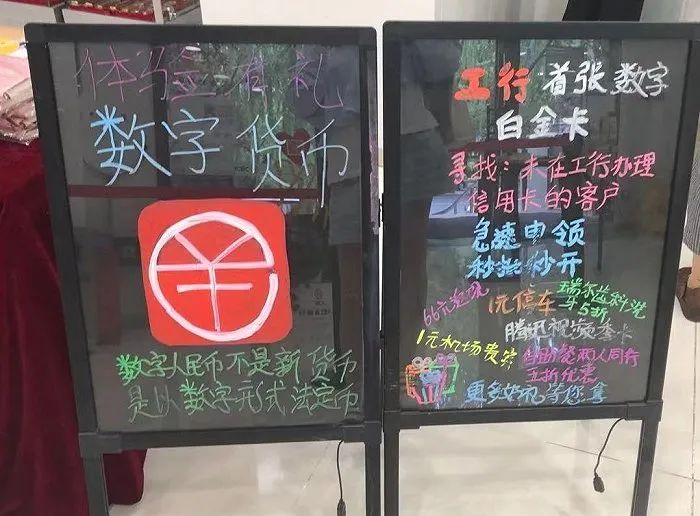 体验有礼
数字货币
数字人民币不是新货币
是以数字形式法定币
工行首张数字
白金卡
寻找：未在工行办理
信用卡的客户
急速申领
秒批秒开
66元
1元停车
瑞尔齿科洗
牙5折
腾讯视频季卡
1元机场贵宾
自助餐两人同行
五折优惠
更多好礼等您拿